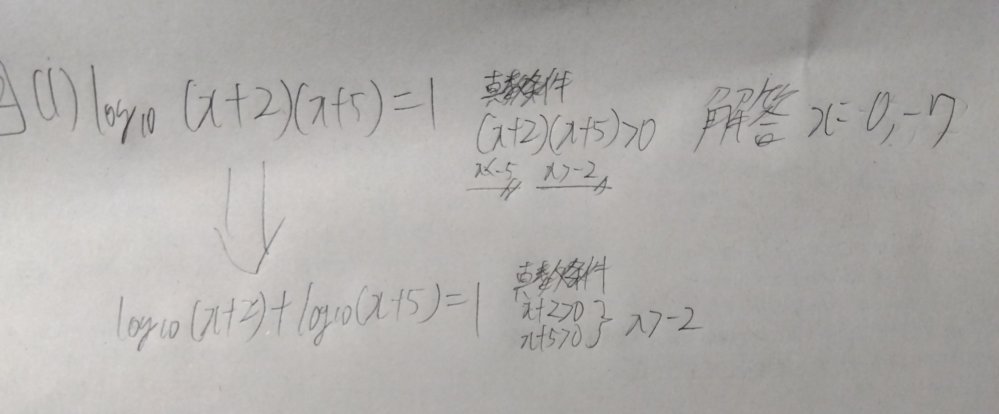 (i) log₁₀ (x+2)(x+5)=1
真数条件
(x+2)(x+5)>0
x<-5 x>-2
解答 x=0,-7
log₁₀(x+2)+log₁₀(x+5)=1
真数条件
x+2>0
x+5>0 } x>-2